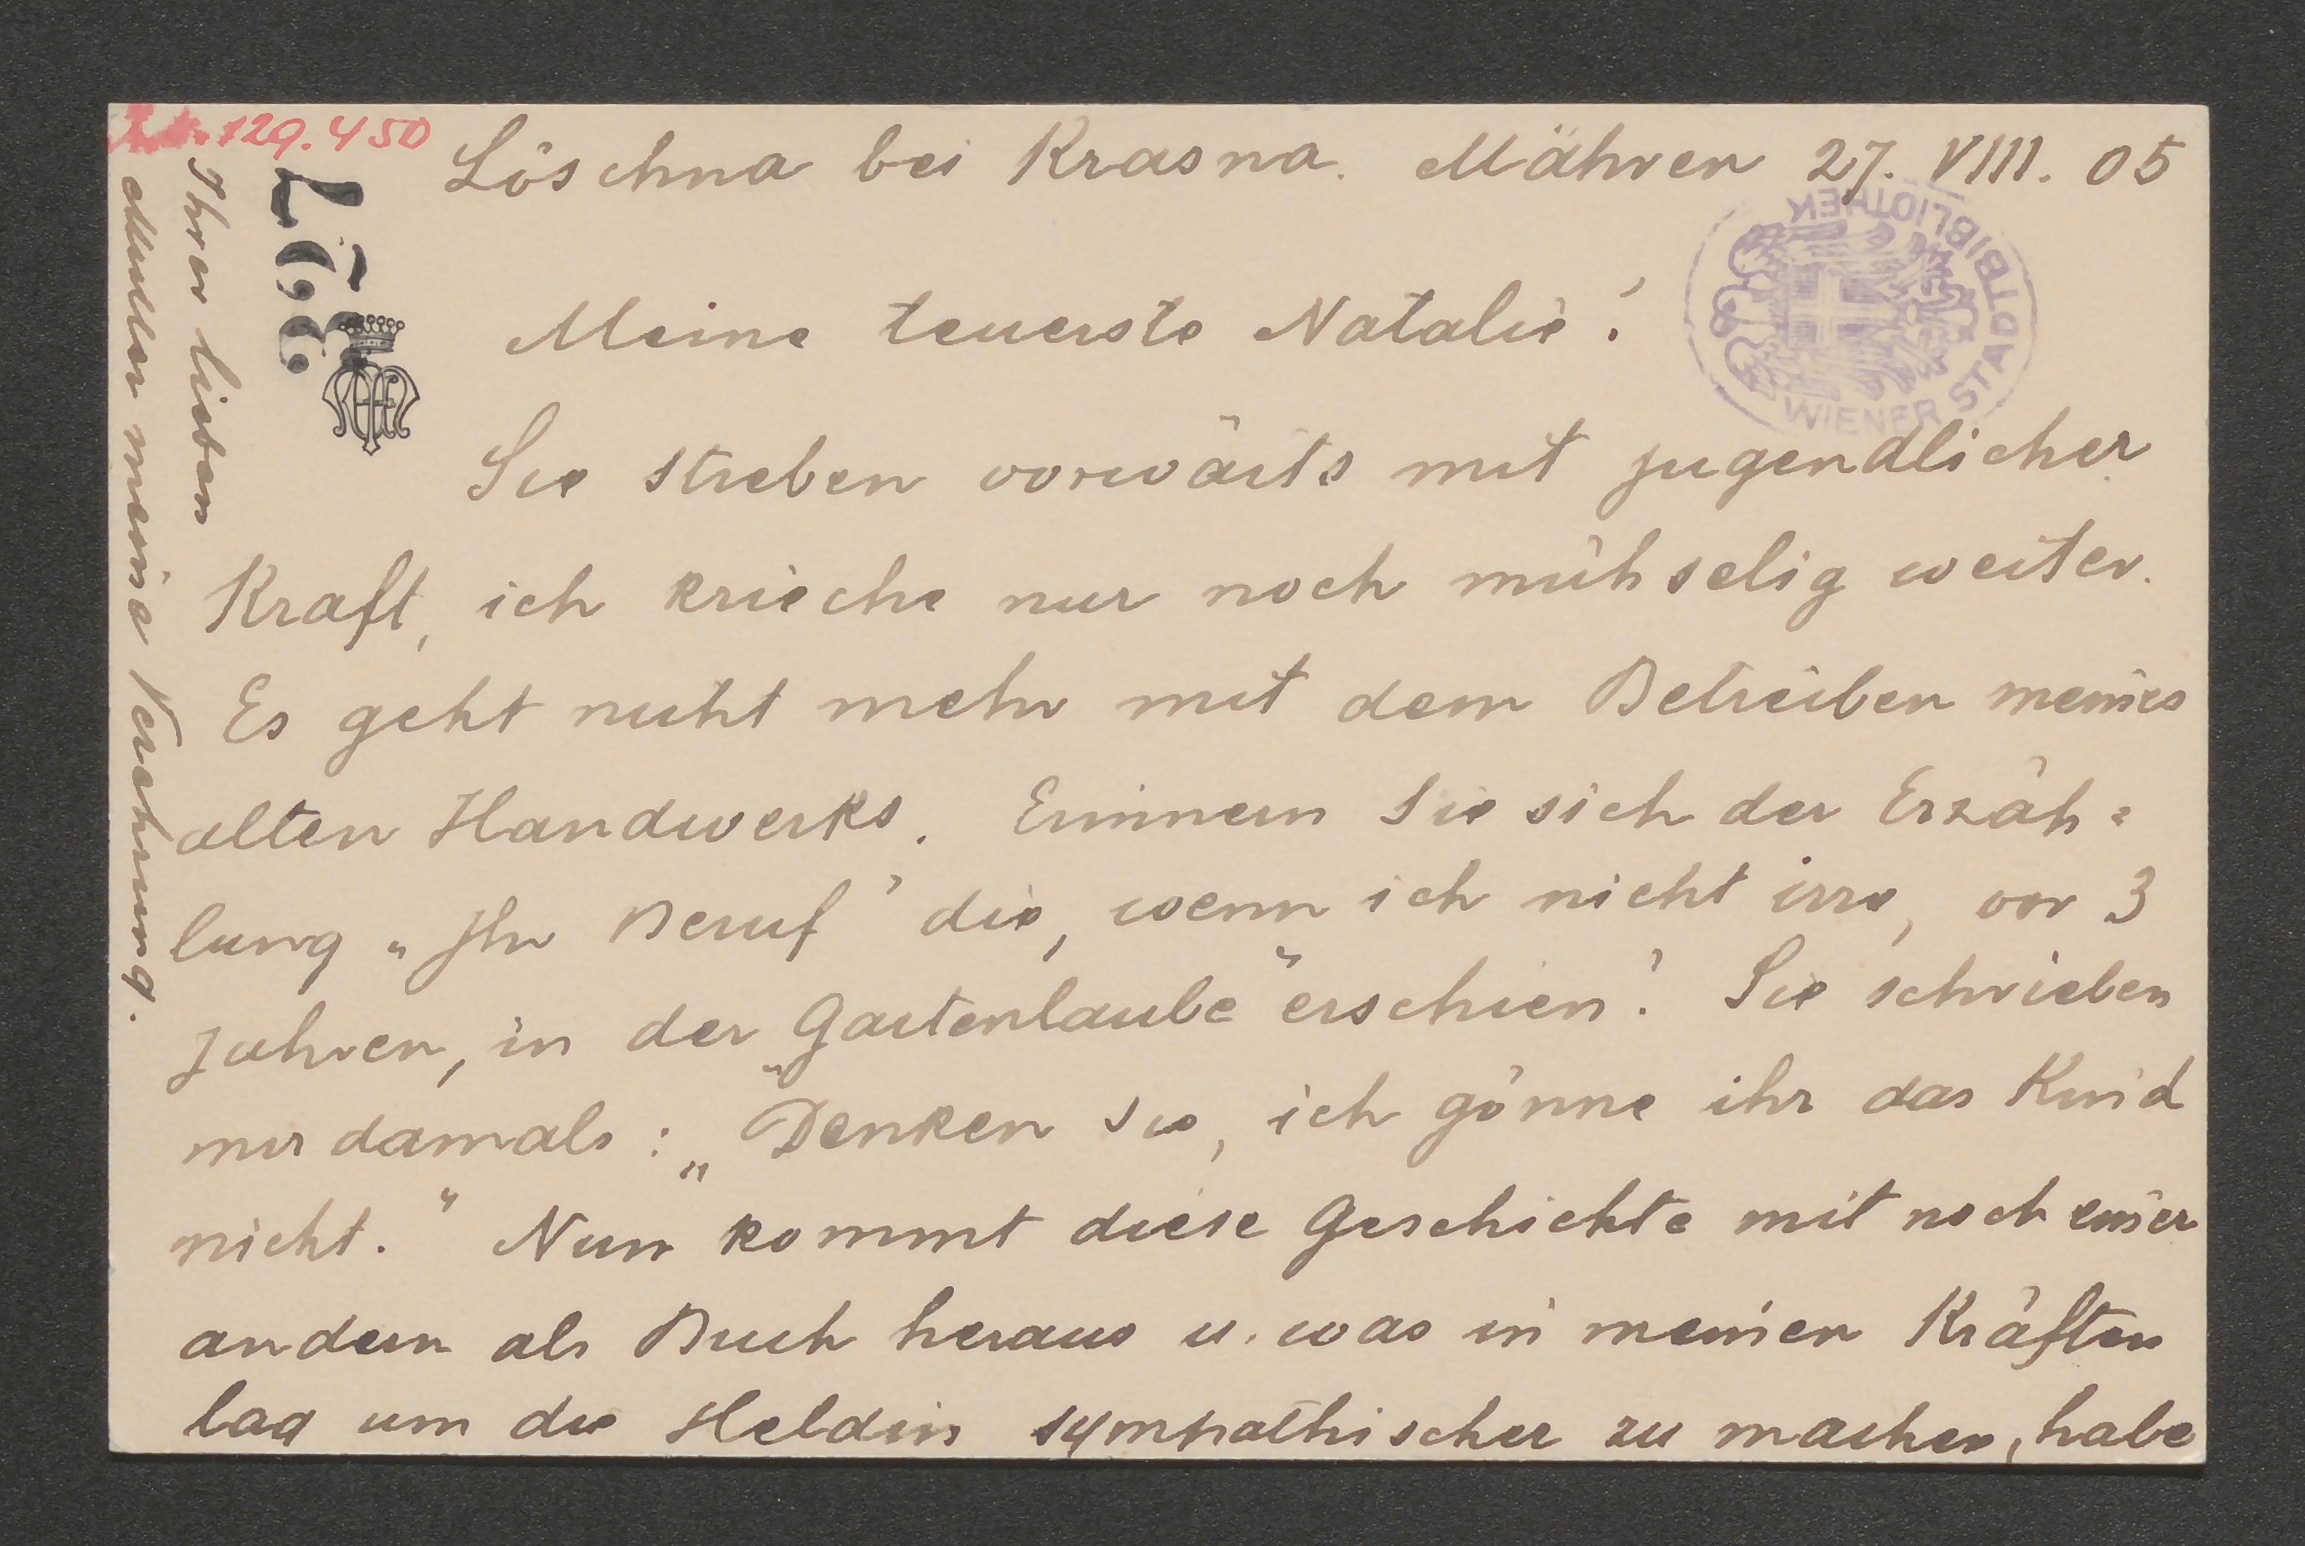 129.450
Löschna bei Krasna. Mähren 27. VIII. 05
WIENER STADTBIBLIOTHEK
Meine teuerste Natalie!
Sie streben vorwärts mit jugendlicher
Kraft, ich krieche nur noch mühselig weiter.
Es geht nicht mehr mit dem Betreiben meines
alten Handwerks. Erinnern Sie sich der Erzäh=
lung „Ihr Beruf" die, wenn ich nicht irre, vor 3
Jahren, in der „Gartenlaube" erschien? Sie schrieben
mir damals: „Denken Sie, ich gönne ihr das Kind
nicht." Nun kommt diese Geschichte mit noch einer
andern als Buch heraus u. was in meinen Kräften
lag um die Heldin sympathischer zu machen, habe
Ihrer lieben
Mutter meine Verehrung.